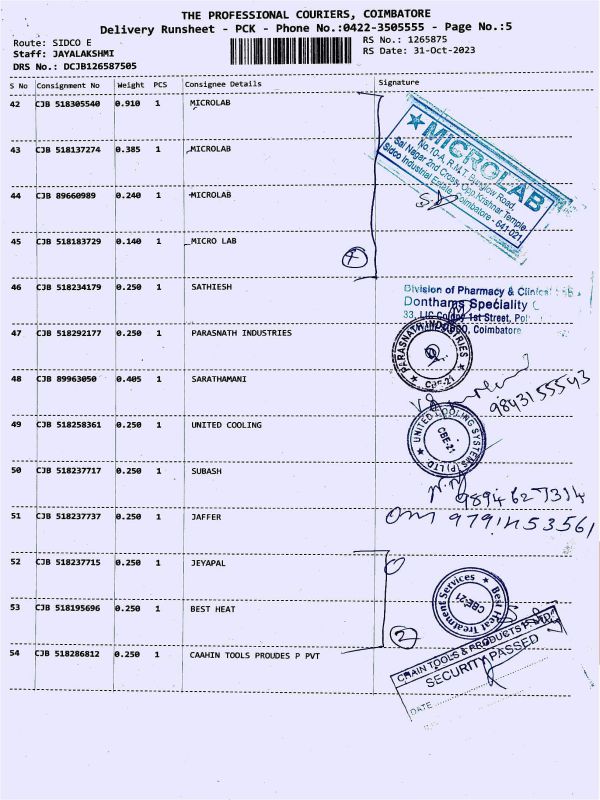 THE PROFESSIONAL COURIERS, COIMBATORE
Delivery Runsheet - PCK - Phone No.:0422-3505555 - Page No.:5
Route: SIDCO E
RS No.: 1265875
Staff: JAYALAKSHMI
RS Date: 31-Oct-2023
DRS No.: DCJB126587505
S No Consignment No Weight PCS Consignee Details Signature
42 CJB 518305540 0.910 1 MICROLAB
MICROLAB
No.10-A, R.M.T.
Sai Nagar 2nd Cross, Opp. Krishnar Temple
Sidco Industrial Estate, Coimbatore - 641 021
43 CJB 518137274 0.385 1 MICROLAB
44 CJB 89660989 0.240 1 MICROLAB
45 CJB 518183729 0.140 1 MICRO LAB
4
46 CJB 518234179 0.250 1 SATHIESH
Division of Pharmacy &
Donthams Speciality
33, LIC Colony 1st Street,
Coimbatore
47 CJB 518292177 0.250 1 PARASNATH INDUSTRIES
PARASNATH INDUSTRIES
CBE-21
48 CJB 89963050 0.405 1 SARATHAMANI
9843155543
49 CJB 518258361 0.250 1 UNITED COOLING
UNITED COOLING SYSTEMS (P) LTD.
CBE-21
50 CJB 518237717 0.250 1 SUBASH
9894627314
51 CJB 518237737 0.250 1 JAFFER
52 CJB 518237715 0.250 1 JEYAPAL
53 CJB 518195696 0.250 1 BEST HEAT
Best Heat Treatment Services
CBE-21
2
54 CJB 518286812 0.250 1 CAAHIN TOOLS PROUDES P PVT
CHAIN TOOLS & PRODUCTS P. LTD.
SECURITY PASSED
DATE